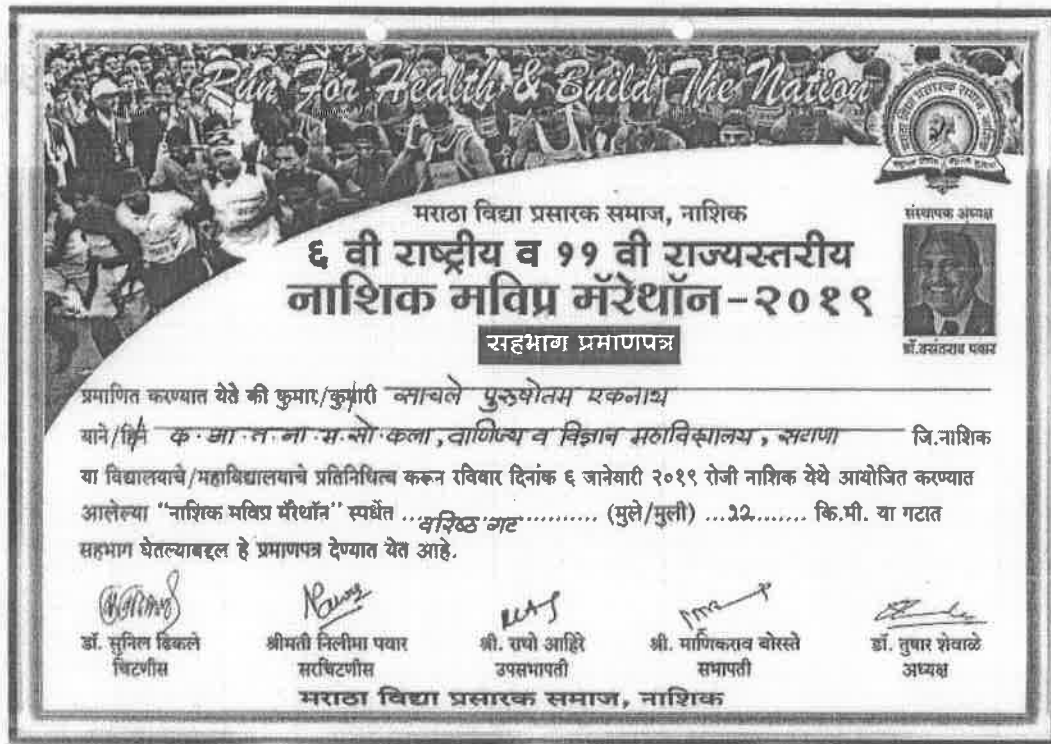 Run For Health & Build The Nation
मराठा विद्या प्रसारक समाज, नाशिक
संस्थापक अध्यक्ष
६ वी राष्ट्रीय व ११ वी राज्यस्तरीय
नाशिक मविप्र मॅरेथॉन-२०१९
सहभाग प्रमाणपत्र
डॉ. वसंतराव पवार
प्रमाणित करण्यात येते की कुमार/कुमारी पुरुषोतम एकनाथ
याने/हिने क.आ.त.ना.म.सो.कला, वाणिज्य व विज्ञान महाविद्यालय, सटाणा जि.नाशिक
या विद्यालयाचे/महाविद्यालयाचे प्रतिनिधित्व करून रविवार दिनांक ६ जानेवारी २०१९ रोजी नाशिक येथे आयोजित करण्यात
आलेल्या "नाशिक मविप्र मॅरेथॉन" स्पर्धेत ....वरिष्ठ गट.... (मुले/मुली) ... कि.मी. या गटात
सहभाग घेतल्याबद्दल हे प्रमाणपत्र देण्यात येत आहे.
डॉ. सुनिल ढिकले श्रीमती निलीमा पवार श्री. राघो आहिरे श्री. माणिकराव बोरस्ते डॉ. तुषार शेवाळे
चिटणीस सरचिटणीस उपसभापती सभापती अध्यक्ष
मराठा विद्या प्रसारक समाज, नाशिक